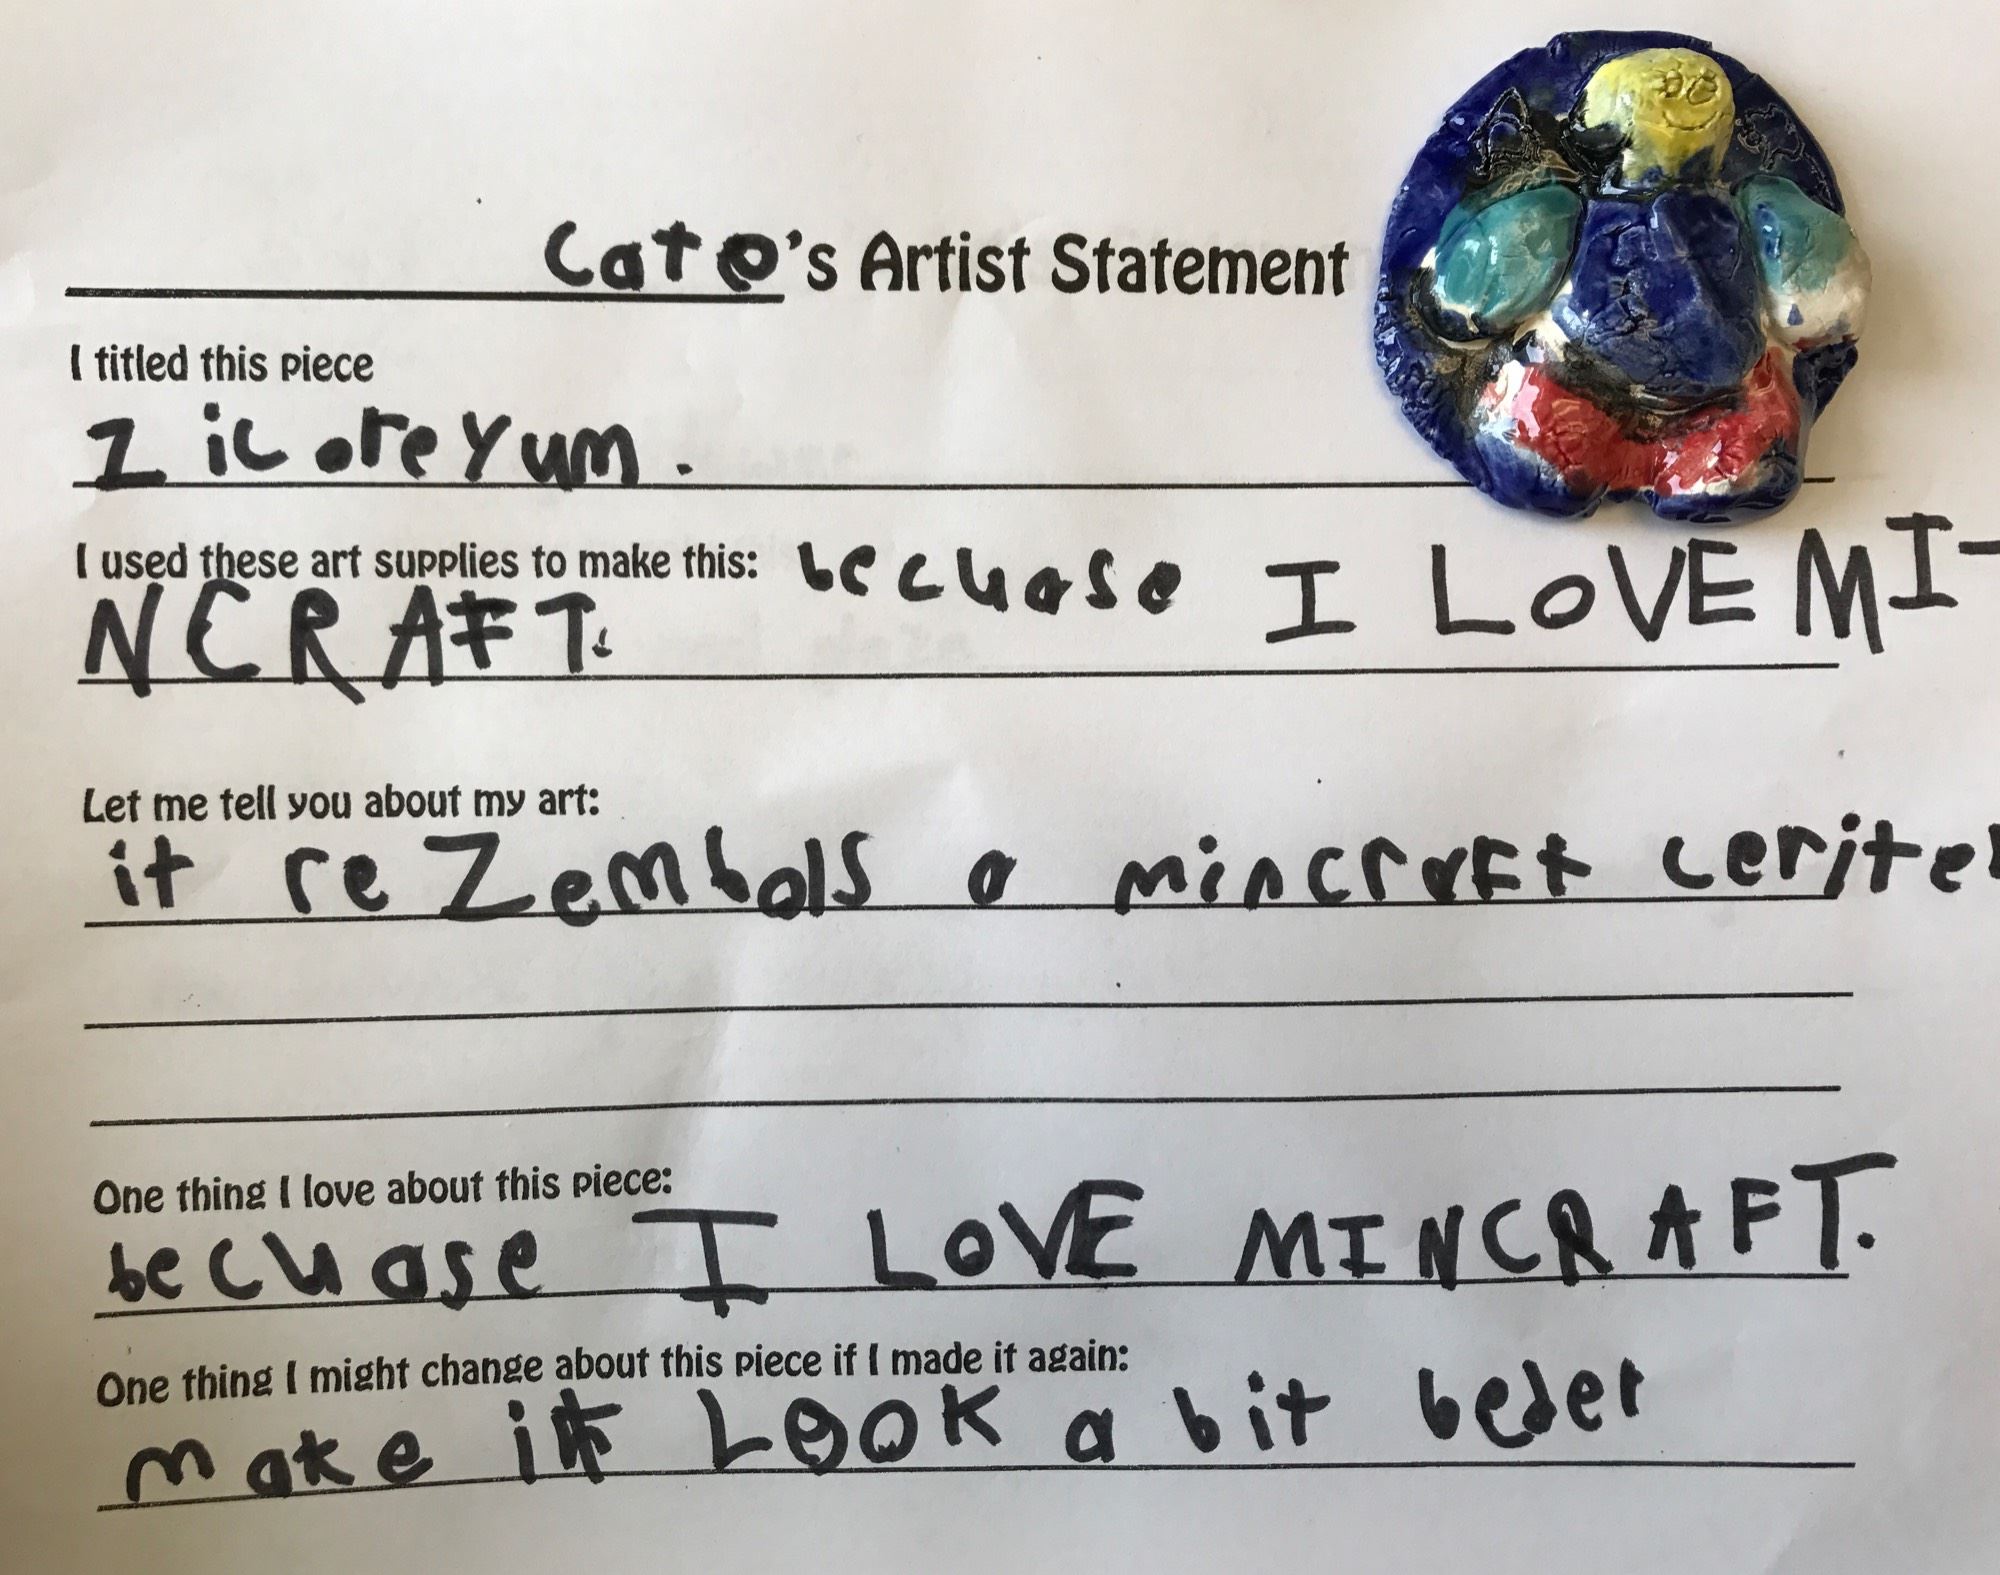 Cato's Artist Statement
I titled this piece
Zicoreyum.
I used these art supplies to make this: becuase I LOVE MI-
NCRAFT.
Let me tell you about my art:
it reZembals a mincraft ceriter
One thing I love about this piece:
becuase I LOVE MINCRAFT.
One thing I might change about this piece if I made it again:
make it LOOK a bit beder